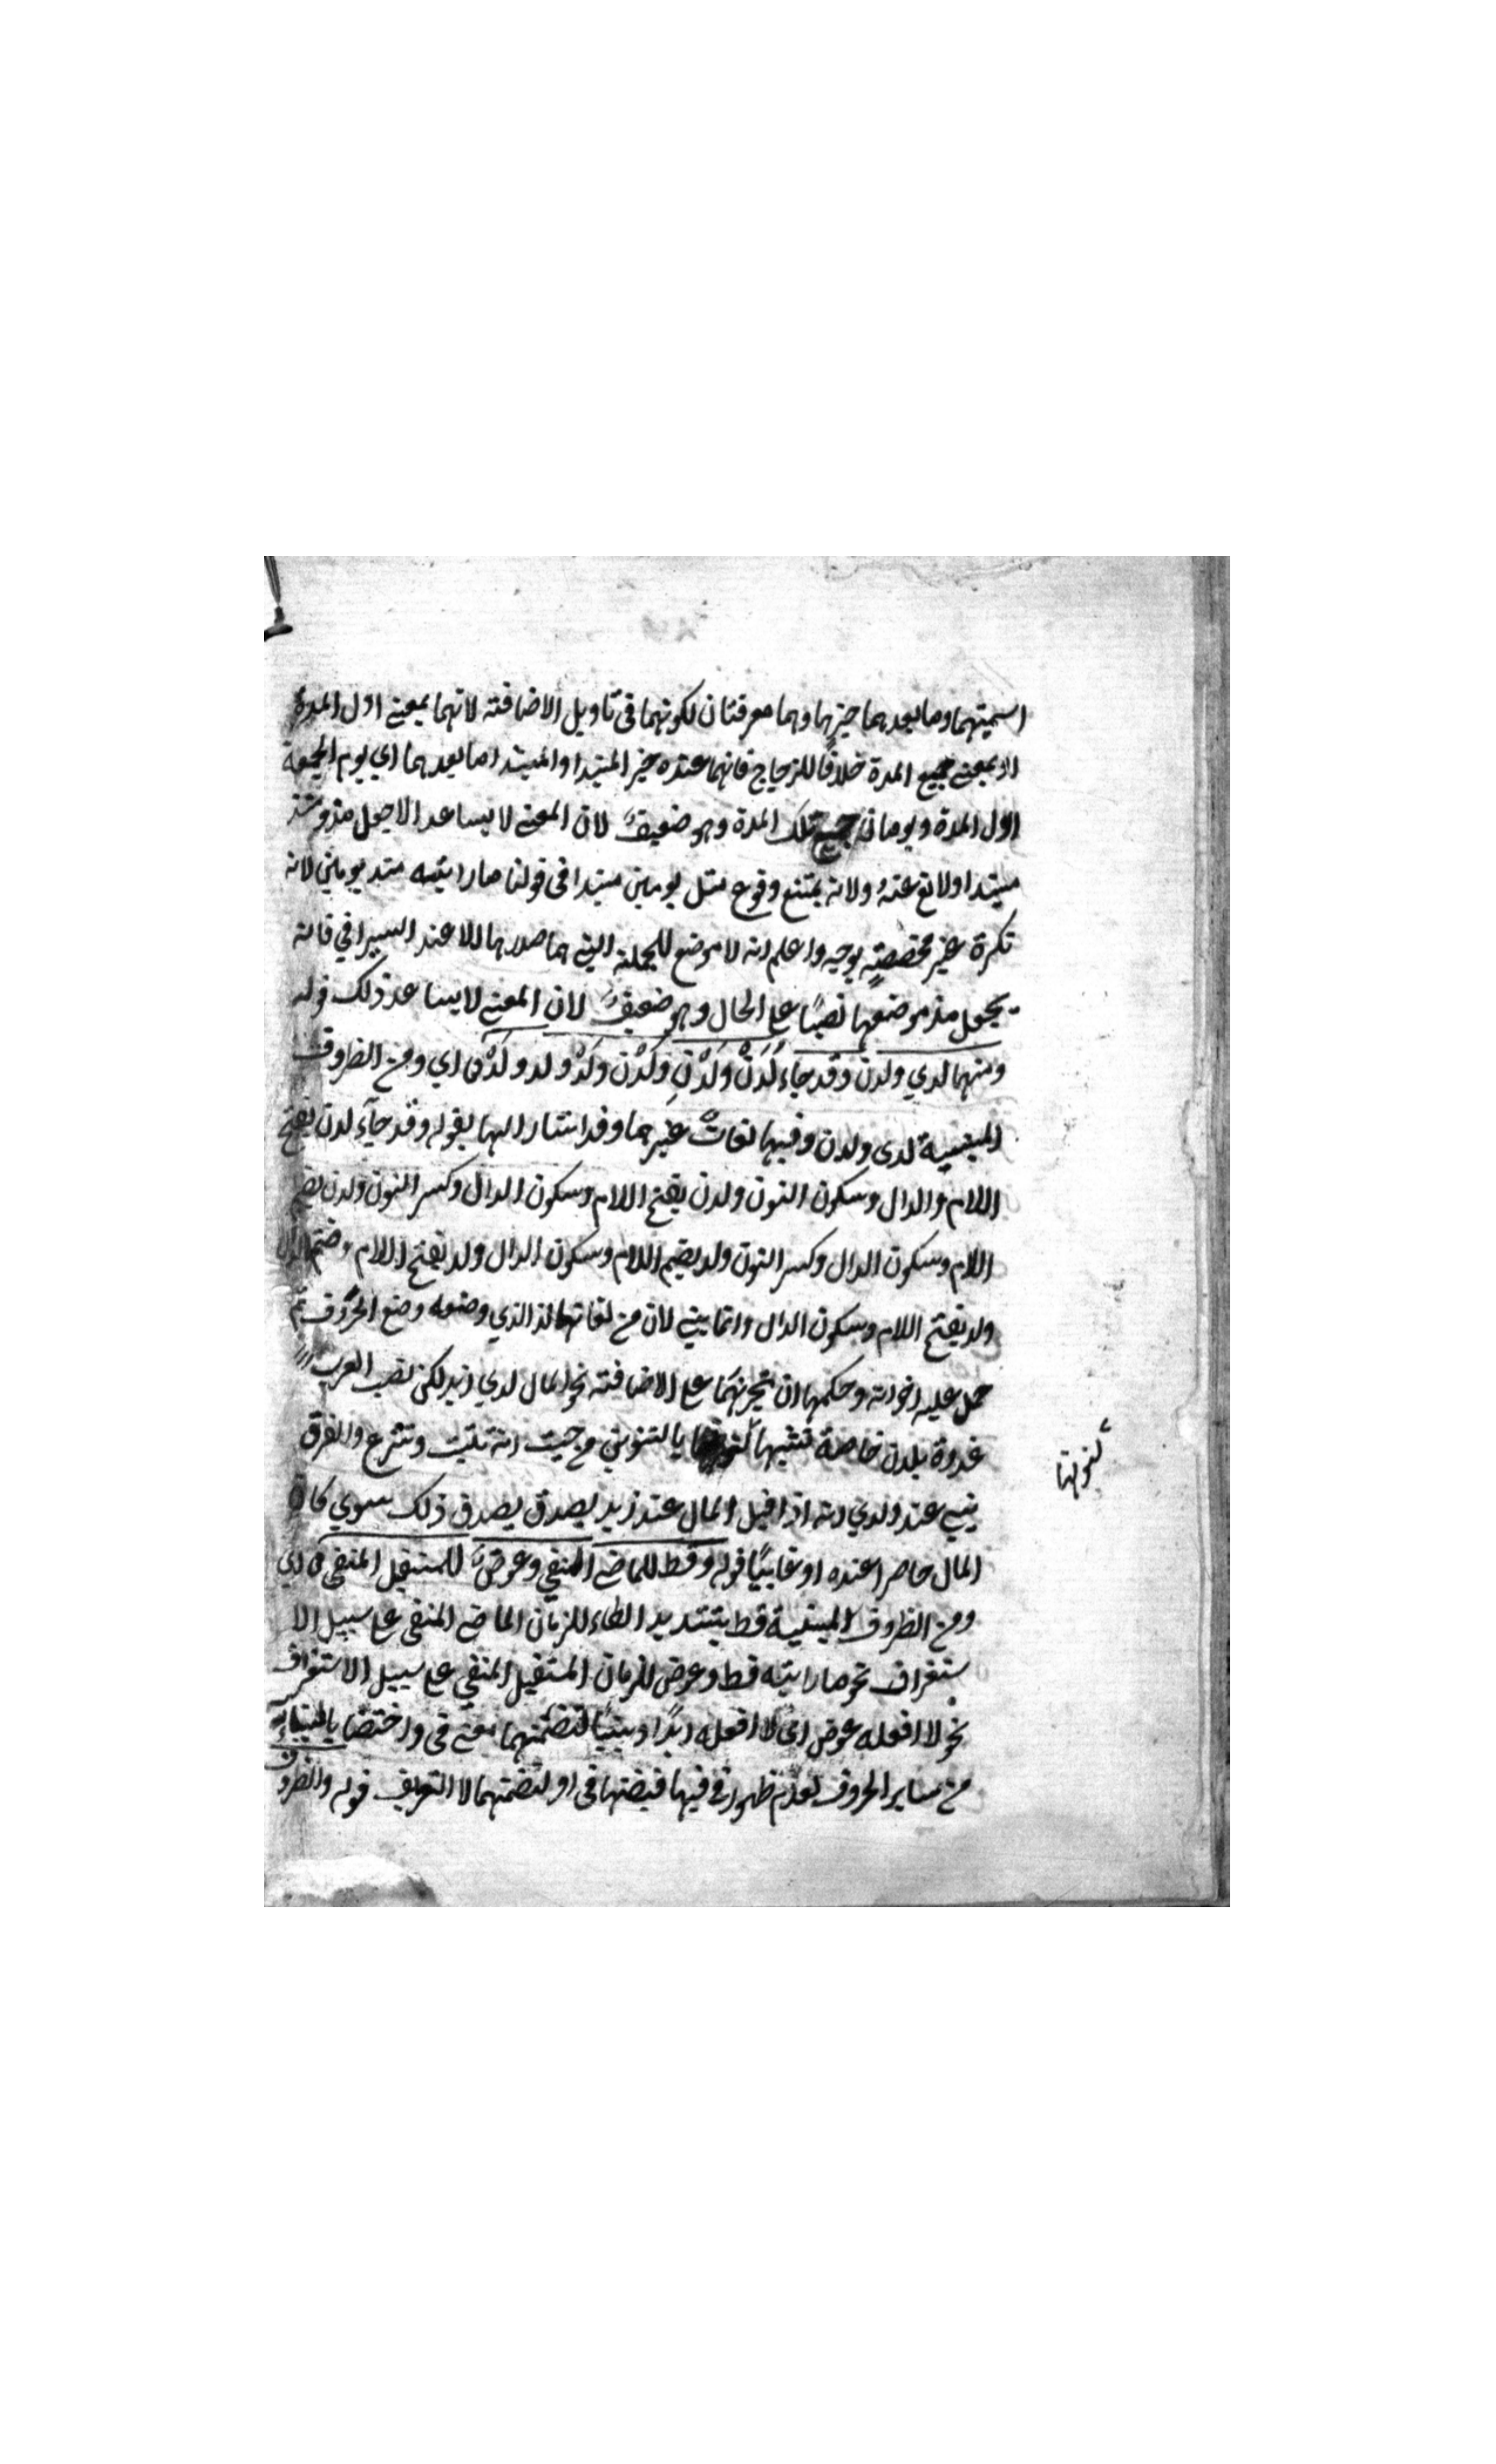 اسميتهما وما بعدهما خبرها وهما معرفتان لكونهما في تاويل الاضافة لانهما بمعنى اول المدة
او بمعنى جميع المدة خلافًا للزجاج فانهما عنده خبر المبتدا والمبتدا ما بعدهما اي يوم الجمعة
اول المدة ويومان جميع تلك المدة وهو ضعيفٌ لان المعنى لا يساعد الا جعل مذ ومنذ
مبتدا ولانه يمتنع وقوع مثل يومين مبتدا في قولنا ما رايته منذ يومين لانه
نكرة غير مخصصةٍ بوجه واعلم انه لا موضع للجملة التي هما صدرها الا عند السيرافي فانه
يجعل مذ موضعها نصبًا على الحال وهو ضعيفٌ لان المعنى لا يساعد ذلك قوله
ومنهما لدي ولدن وقد جاء لَدَنْ ولَدْنِ ولُدْنِ ولَدْ ولد ولَدُ اي ومن الظروف
المبنية لدى ولدن وفيهما لغاتٌ غيرهما وقد اشار اليها بقوله وقد جآء لدن بفتح
اللام والدال وسكون النون ولدن بفتح اللام وسكون الدال وكسر النون ولدن بضم
اللام وسكون الدال وكسر النون ولد بضم اللام وسكون الدال ولد بفتح اللام وضم الدال
ولد بفتح اللام وسكون الدال وانما بني لان من لغاتها لد الذي وضعه وضع الحروف ثم
حمل عليه اخواته وحكمها ان تجر بهما على الاضافة نحو المال لدي زيد لكن نصب العرب
غدوة بلدن خاصة تشبيها لنونها بالتنوين من حيث انه يثبت وينزع والفرق
بين عند ولدي انه اذا قيل المال عند زيد يصدق يصدق ذلك سوي كان
المال حاصرا عنده او غايبًا قوله وقط للماضي المنفي وعوضٌ للمستقبل المنفي اي
ومن الظروف المبنية قط بتشديد الطاء للزمان الماضي المنفي على سبيل الا
ستغراق نحو ما رايته قط وعوض للزمان المستقبل المنفي على سبيل الاستغراق
نحو لا افعله عوض اى لا افعله ابدًا وبنيا لتضمنهما معنى في واختصا بالبناء
من ساير الحروف لعدم ظهور في فيهما فبضتها في او لتضمنهما لا التعريف قوله والظروف
لنونها